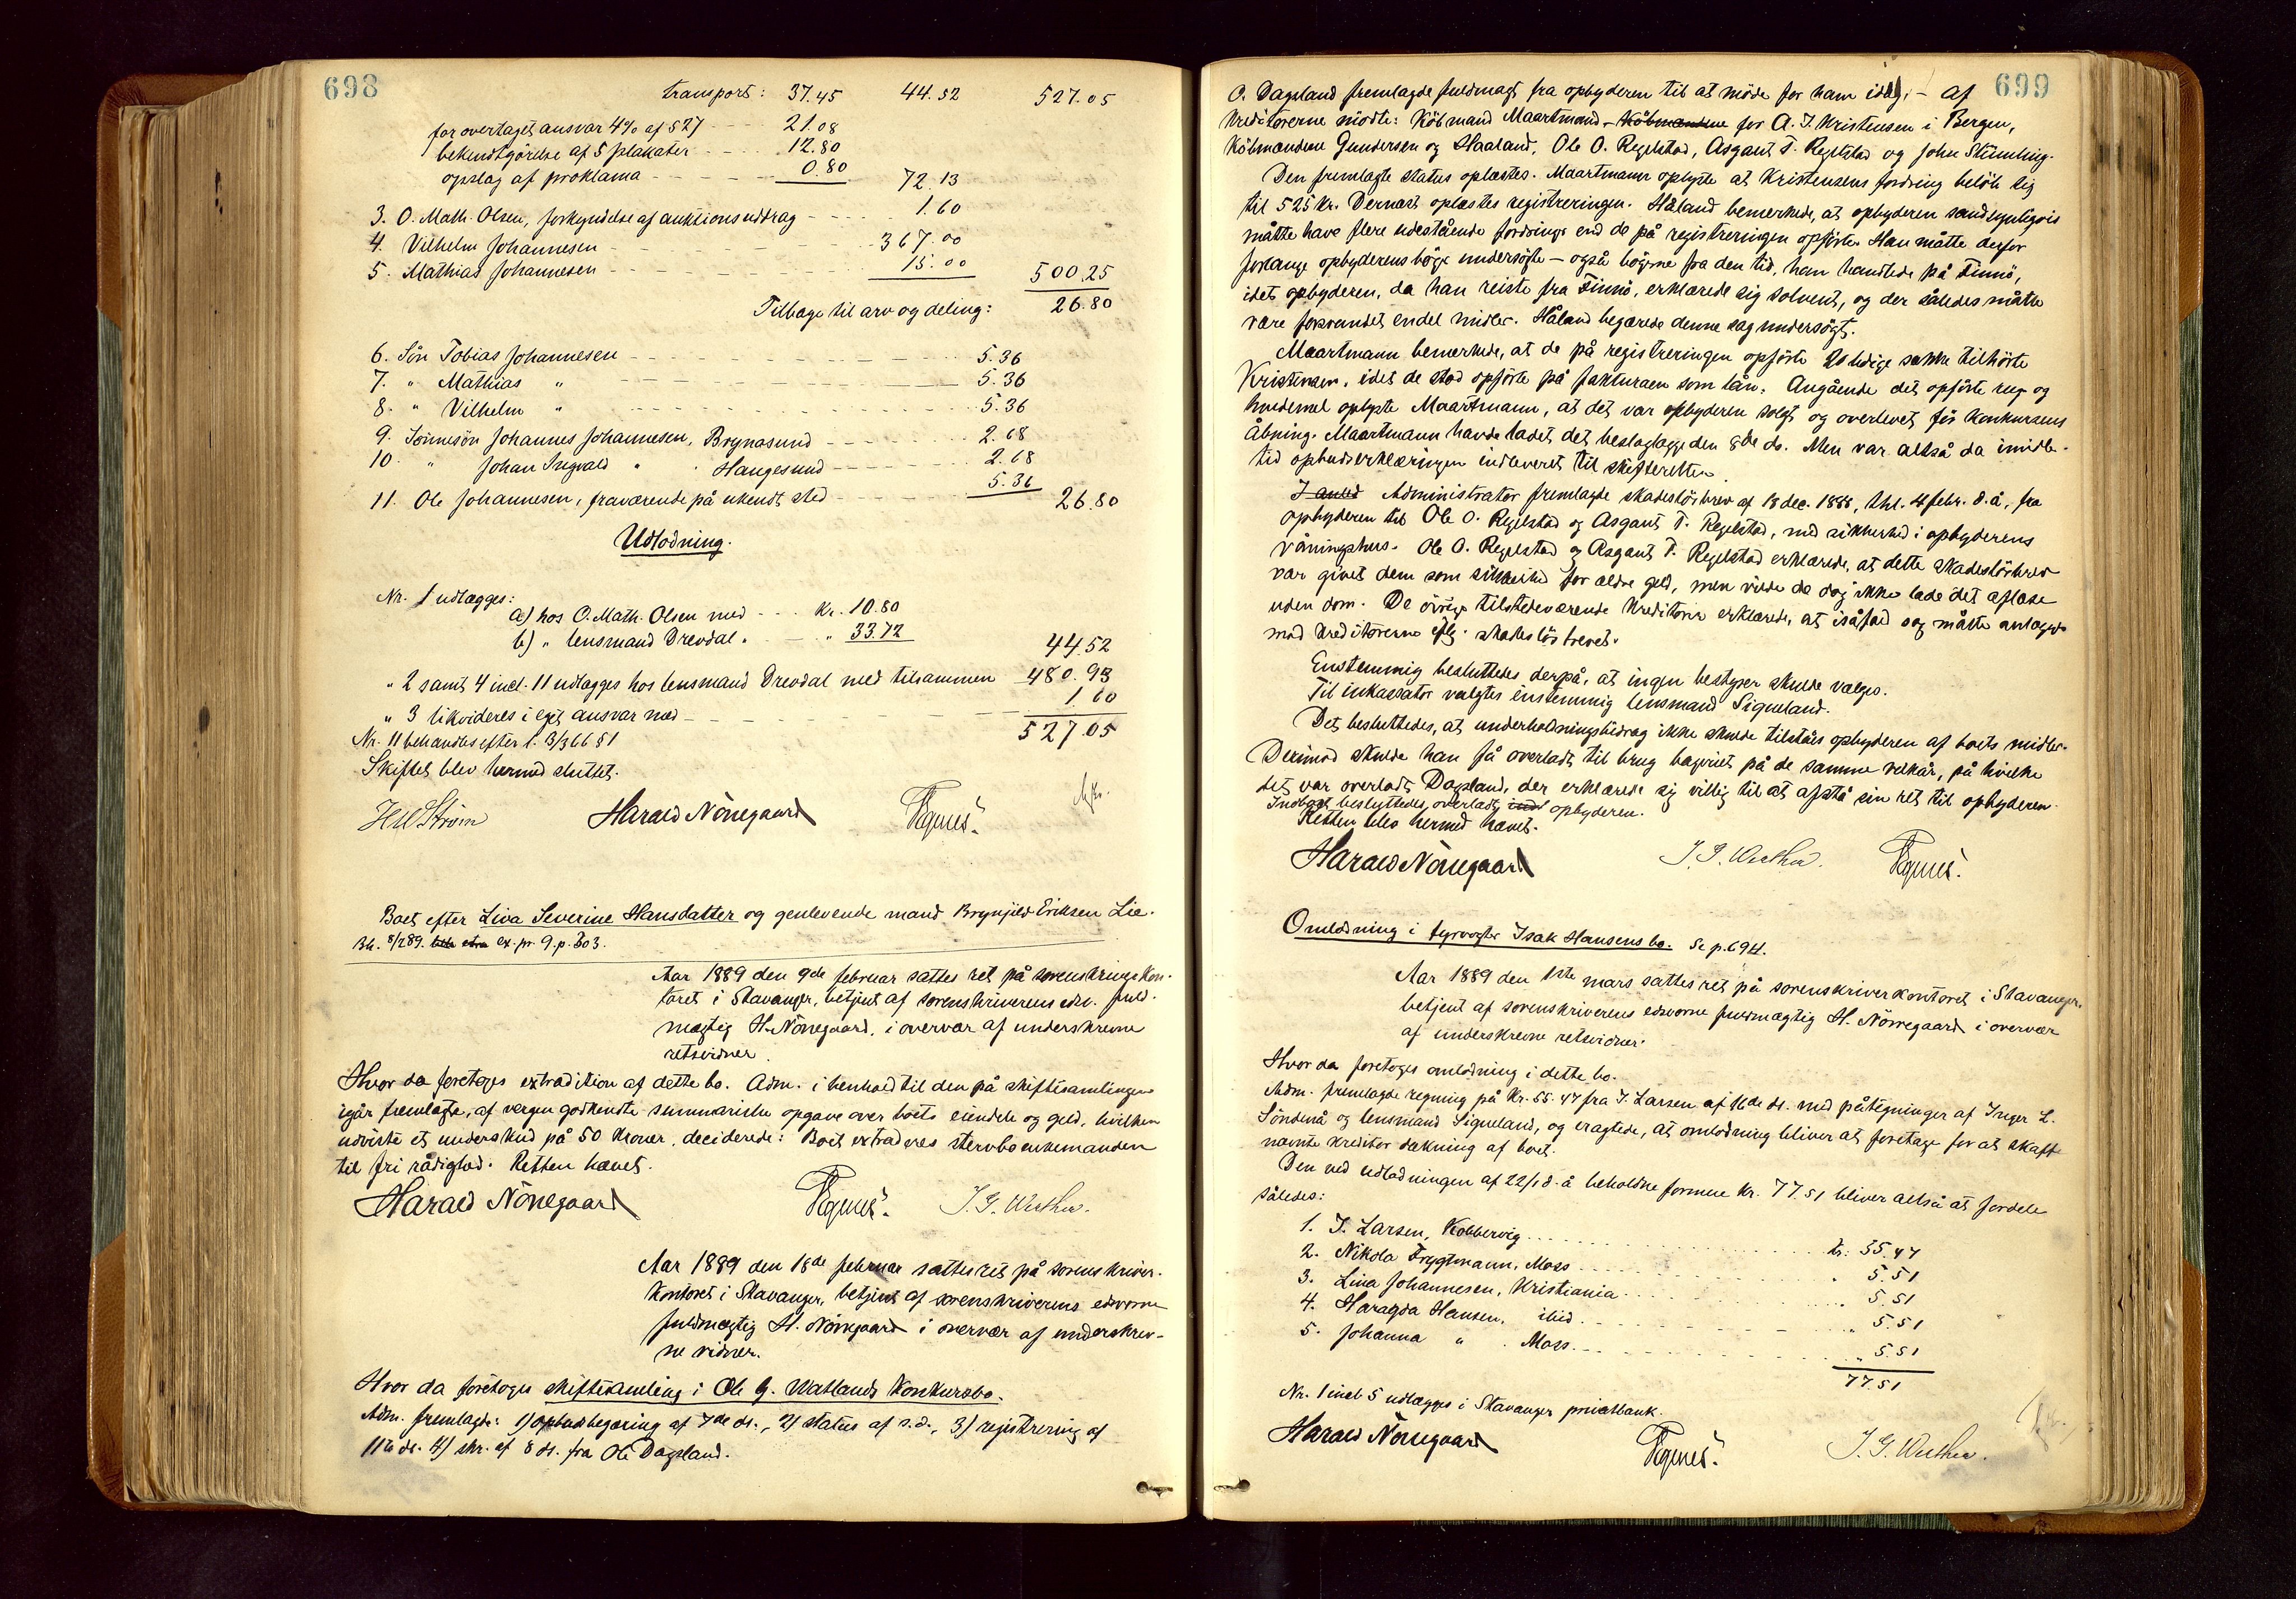 698
transport: 37.45 44.52 527.05
for overtaget ansvar 4% af 527 21.08
bekendtgörelse af 5 plakater 12.80
opslag af proklama 0.80 72.13
3. O. Math. Olsen, forkyndelse af auktionsuddrag 1.60
4. Vilhelm Johannesen 367.00
5. Mathias Johannesen 15.00 500.25
Tilbage til arv og deling: 26.80
6. Sön Tobias Johannesen 5.36
7. " Mathias " 5.36
8. " Vilhelm " 5.36
9. Sönnesön Johannes Johannesen, Brynasund 2.68
10. " Johan Ingvald " Haugesund 2.68
11. Ole Johannesen, fraværende på ukendt sted 5.36 26.80
Udlodning.
Nr. 1 udlægges:
a) hos O. Math. Olsen med Kr. 10.80
b) " lensmand Drevdal " " 33.72 44.52
" 2 samt 4 incl. 11 udlægges hos lensmand Drevdal med tilsammen 480.93
" 3 likvideres i eget ansvar med 1.60
527.05
Nr. 11 behandles efter l. 3/3 66 § 1
Skiftet blev hermed sluttet.
HWStröm Harald Nörregaard Tegnes.
Boet efter Liva Severine Hansdatter og genlevende mand Brynjild Eriksen Lie.
Bh. 8/2 89. ex. pr. 9. p. 303.
Aar 1889 den 9de februar sattes ret på sorenskriverkon-
toret i Stavanger, betjent af sorenskriverens edsv. fuld-
mægtig H. Nörregaard, i overvær af underskrevne
retsvidner.
Hvor da foretoges extradition af dette bo. Adm. i henhold til den på skiftesamlingen
igår fremlagte, af vergen godkendte summariske opgave over boets eiendele og geld, hvilken
udviste et underskud på 50 kroner, deciderede: Boet extraderes stervboenkemanden
til fri rådighed. Retten hævet.
Harald Nörregaard Tegnes. J. G. Wiethe.
Aar 1889 den 18de februar sattes ret på sorenskriver-
kontoret i Stavanger, betjent af sorenskriverens edsvorne
fuldmægtig H. Nörregaard i overvær af underskrev-
ne vidner.
Hvor da foretoges skiftesamling i Ole G. Watlands konkursbo.
Adm. fremlagde: 1) opbudsbegæring af 7de ds., 2) status af s.d., 3) registrering af
11te ds. 4) skr. af 8 ds. fra Ole Dagsland.
699
O. Dagsland fremlagde fuldmagt fra opbyderen til at möde for ham idag. – af
kreditorerne mödte: Köbmand Maartmann – Köbmændene for A. J. Kristensen i Bergen,
köbmændene Gundersen og Haaland, Ole O. Regelstad, Asgaut T. Regelstad og John Stumling.
Den fremlagte status oplæstes. Maartmann oplyste at Kristensens fordring belöb sig
til 525 kr. Dernæst oplæstes registreringen. Håland bemerkede, at opbyderen sandsynligvis
måtte have flere udestående fordringer end de på registreringen opförte. Han måtte derfor
forlange opbyderens böger undersögte – også bögerne fra den tid, han handlede på Finnö,
idet opbyderen, da han reiste fra Finnö, erklærede sig solvent, og der således måtte
være forsvundet endel midler. Håland begærede denne sag undersögt.
Maartmann bemerkede, at de på registreringen opförte 20 ledige sække tilhörte
Kristensen, idet de stod opförte på fakturaen som lån. Angående det opförte rug og
hvedemel oplyste Maartmann, at det var opbyderen solgt og overlevet för konkursens
åbning. Maartmann havde ladet det beslaglægge den 8de ds. Men var altså da imidler-
tid opbudserklæringen indleveret til skifteretten.
I anled Administrator fremlagde skadeslösbrev af 18 dec. 1888, thl. 4 febr. d.å., fra
opbyderen til Ole O. Regelstad og Asgaut T. Regelstad, med sikkerhed i opbyderens
våningshus. Ole O. Regelstad og Asgaut T. Regelstad erklærede, at dette skadeslösbrev
var givet dem som sikkerhed for ældre geld, men vilde de dog ikke lade det aflæse
uden dom. De övrige tilstedeværende kreditorer erklærede, at isåfald sag måtte anlægges
mod kreditorerne iflg. skadeslösbrevet.
Enstemmig besluttedes derpå, at ingen bestyrer skulde vælges.
Til inkassator valgtes enstemmig lensmand Sigveland.
Det besluttedes, at underholdningsbidrag ikke skulde tilstås opbyderen af boets midler.
Derimod skulde han få overladt til brug bageriet på de samme vilkår, på hvilke
det var overladt Dagsland, der erklærede sig villig til at afstå sin ret til opbyderen.
Indboet besluttedes overladt opbyderen.
Retten blev hermed hævet.
Harald Nörregaard J. G. Wiethe. Tegnes.
Omlodning i fyrvogter Isak Hansens bo. Se p. 694.
Aar 1889 den 1ste mars sattes ret på sorenskriverkontoret i Stavanger,
betjent af sorenskriverens edsvorne fuldmægtig H. Nörregaard i overvær
af underskrevne retsvidner.
Hvor da foretoges omlodning i dette bo.
Adm. fremlagde regning på Kr. 55.47 fra J. Larsen af 16de ds. med påtegninger af Inger L.
Söndenå og lensmand Sigveland, og eragtede, at omlodning bliver at foretage for at skaffe
nævnte kreditor dækning af boet.
Den ved udlodningen af 22/1 d. å. beholdne formue Kr. 77.51 bliver altså at fordele
således:
1. J. Larsen, Kobbervig kr. 55.47
2. Nikola Frygtmann, Moss " 5.51
3. Lina Johannesen, Kristiania " 5.51
4. Haragda Hansen, ibid. " 5.51
5. Johanna " Moss. " 5.51
77.51
Nr. 1 incl. 5 udlægges i Stavanger privatbank.
Harald Nörregaard Tegnes. J. G. Wiethe.